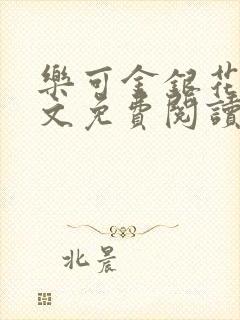 樂可金銀花
文免費閱讀
北晨